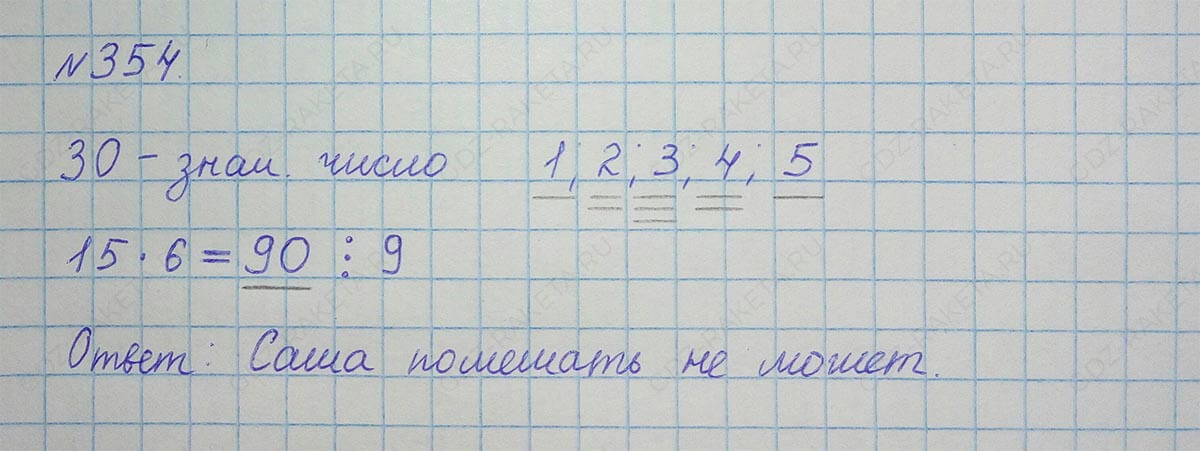 №354.
30 - знач. число 1; 2; 3; 4; 5
15 · 6 = 90 ⋮ 9
Ответ: Саша помешать не может.
GDZ-RAKETA.RU